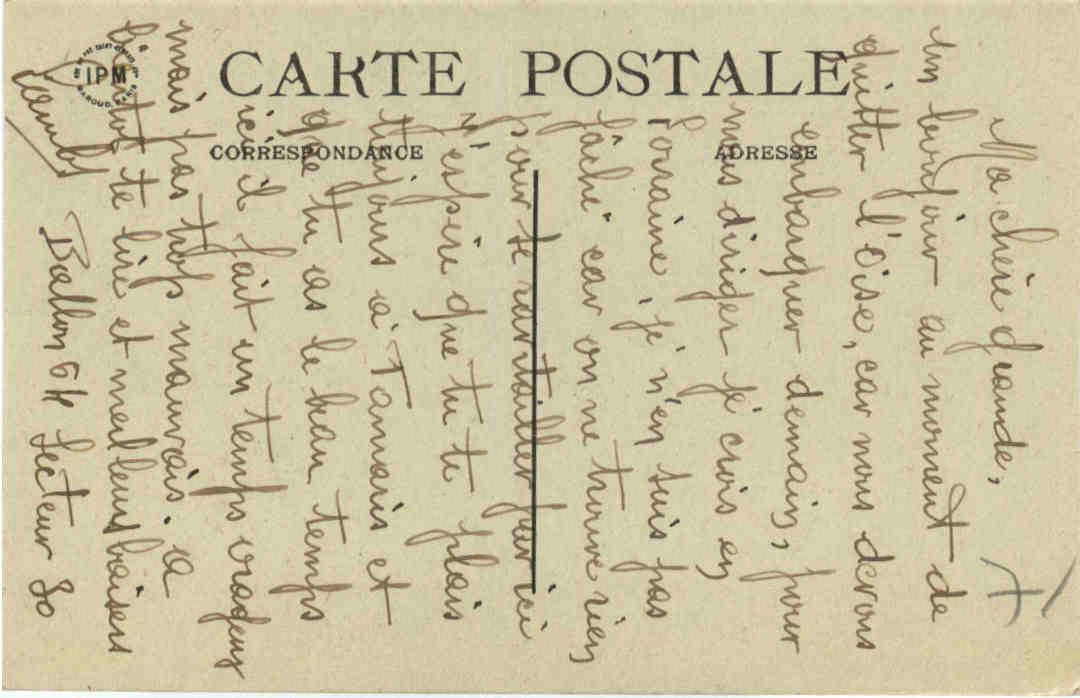 CARTE POSTALE
CORRESPONDANCE
ADRESSE
Ma chère
un bonjour au moment de
quitter l'Oise, car nous devons
enbarquer demain, pour
nous diriger je crois en
Loraine, je n'en suis pas
fâché car on ne trouve rien
pour se ravitailler par ici
J'éspère que tu te plais
toujours à Tamaris et
que tu as le beau temps
ici il fait un temps orageux
mais pas trop mauvais. a
bientôt te lire et meilleurs baisers
Ballon 64 Secteur 80
IPM